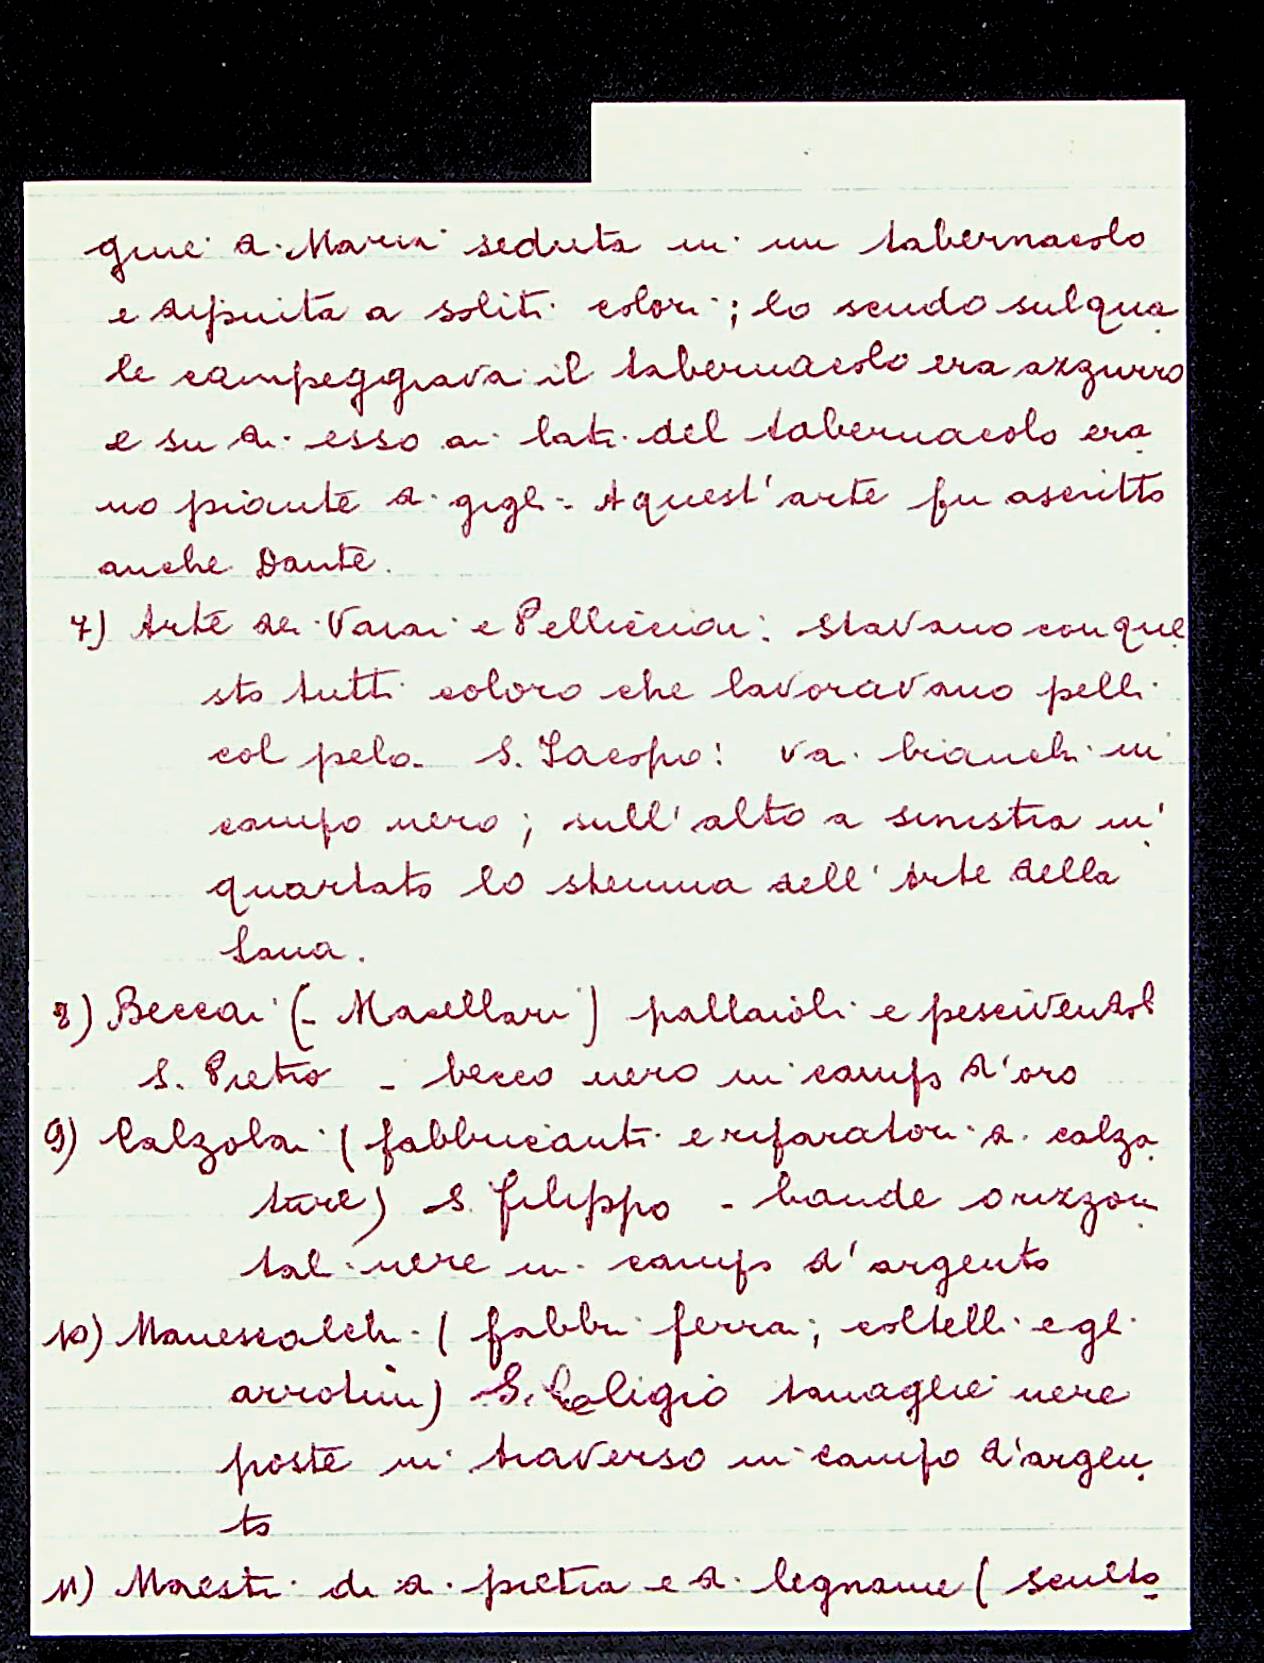 gine di Maria seduta in un tabernacolo
e dipinta a soliti colori; lo scudo sul qua
le campeggiava il tabernacolo era azzurro
e su di esso ai lati del tabernacolo era
no piante di gigli - A quest'arte fu ascritto
anche Dante.
7) Arte dei Vaiai e Pellicciai: stavano con que
sto tutti coloro che lavoravano pelli
col pelo. S. Jacopo: vai bianchi in
campo nero; sull'alto a sinistra in
quartato lo stemma dell'Arte della
lana.
8) Beccai (- Macellari) pollaioli e pescivendoli
S. Pietro - becco nero in campo d'oro
9) Calzolai (fabbricanti e riparatori di calza
ture) S. Filippo - bande orizzon
tali nere in campo d'argento
10) Maniscalchi (fabbri ferrai; coltelli e gli
arrotini) S. Eeligio tanaglie nere
poste in traverso in campo d'argen
to
11) Maestri di di pietra e di legname (sculto